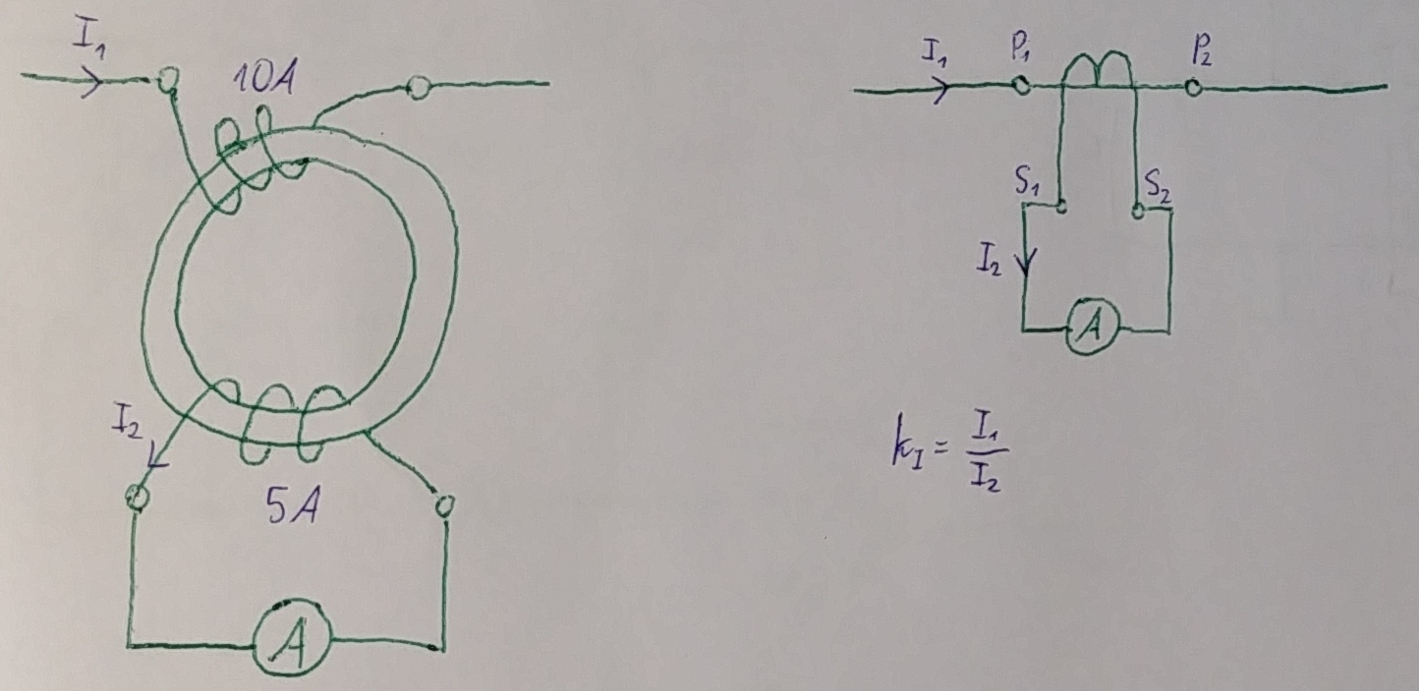 I₁
10A
I₂
5A
A
I₁ P₁ P₂
S₁ S₂
I₂
A
k_I = I₁/I₂